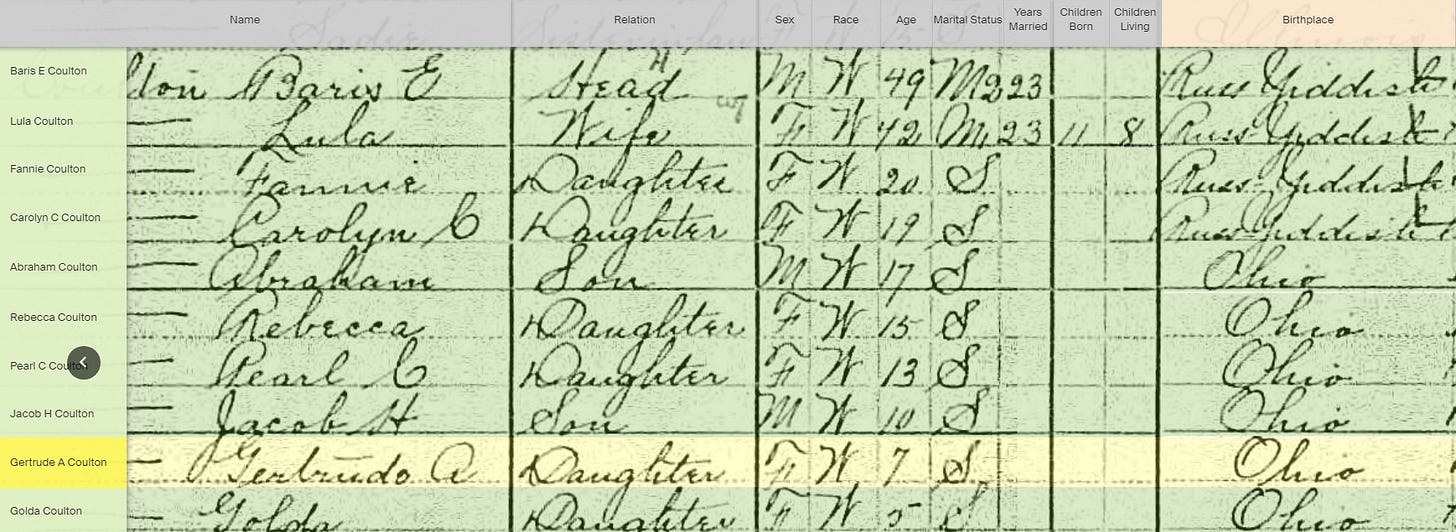 Name Relation Sex Race Age Marital Status Years Married Children Born Children Living Birthplace
Baris E Coulton lton Baris E Head M W 49 M2 23 Russ Yiddish
Lula Coulton Lula Wife F W 42 M1 23 11 8 Russ Yiddish
Fannie Coulton Fannie Daughter F W 20 S Russ Yiddish
Carolyn C Coulton Carolyn C Daughter F W 19 S Russ Yiddish
Abraham Coulton Abraham Son M W 17 S Ohio
Rebecca Coulton Rebecca Daughter F W 15 S Ohio
Pearl C Coulton Pearl C Daughter F W 13 S Ohio
Jacob H Coulton Jacob H Son M W 10 S Ohio
Gertrude A Coulton Gertrude A Daughter F W 7 S Ohio
Golda Coulton Golda Daughter F W 5 S Ohio